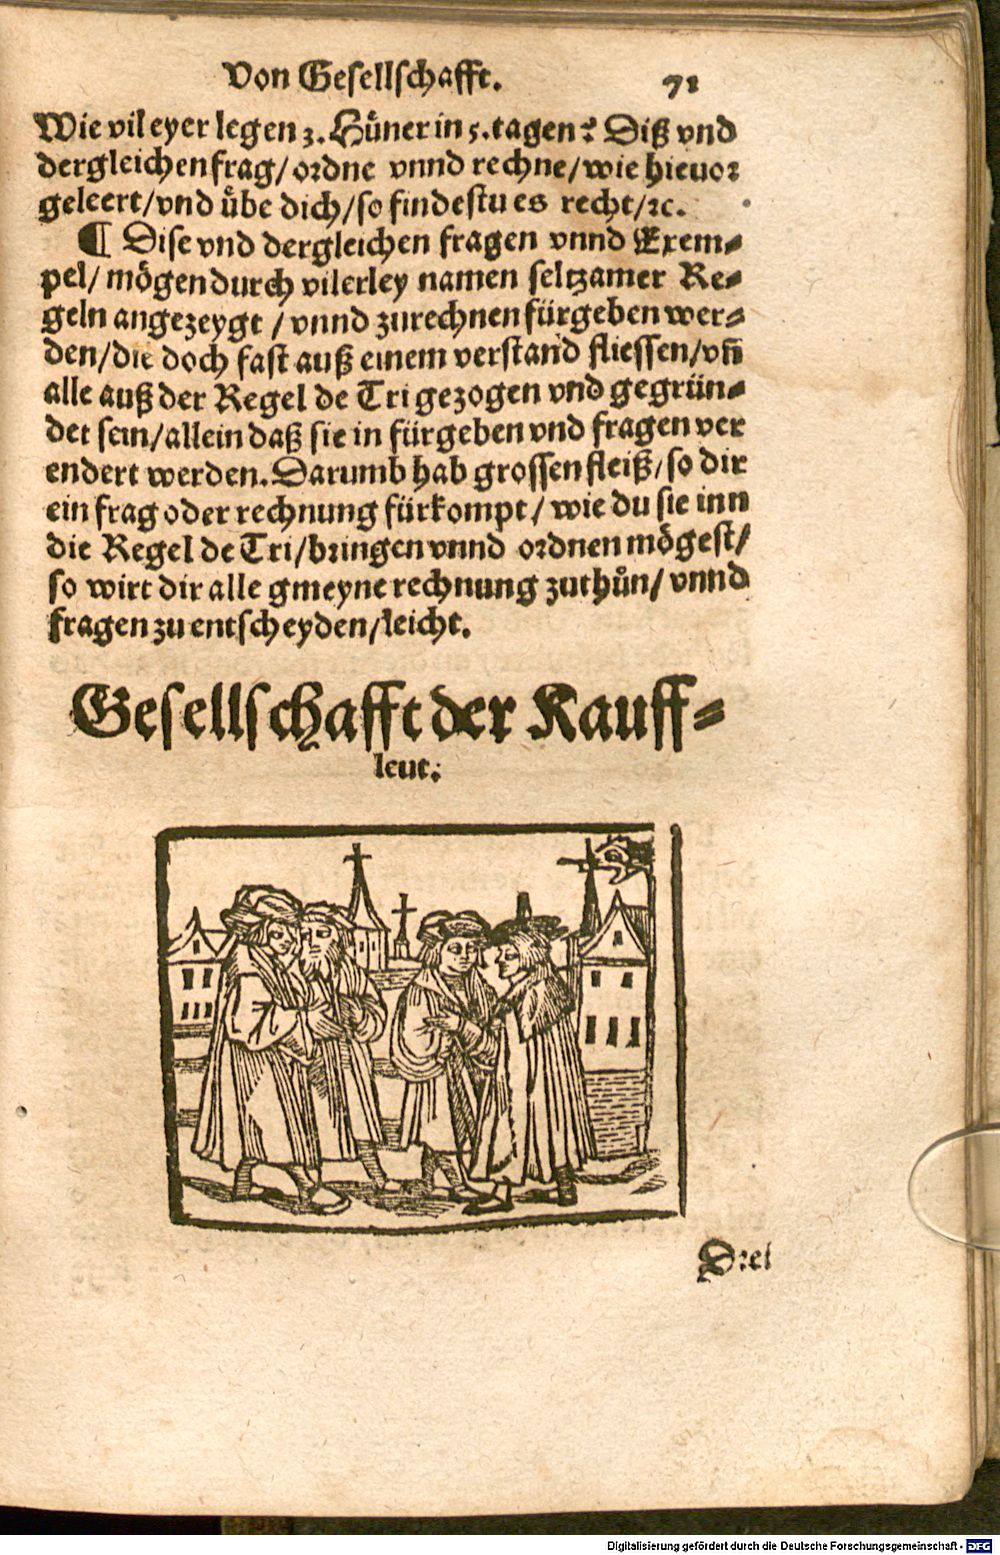 Von Geſellſchafft. 71
Wie vil eyer legen 3. Huͤner in 5. tagen? Diß vnd
dergleichen frag/ ordne vnnd rechne/ wie hieuor
geleert/ vnd uͤbe dich/ ſo findeſtu es recht/ ꝛc.
¶ Diſe vnd dergleichen fragen vnnd Exem⸗
pel/ moͤgen durch vilerley namen ſeltzamer Re⸗
geln angezeygt / vnnd zurechnen fürgeben wer⸗
den/ die doch faſt auß einem verſtand flieſſen/ vñ
alle auß der Regel de Tri gezogen vnd gegrün⸗
det ſein/ allein daß ſie in fürgeben vnd fragen ver
endert werden. Darumb hab groſſen fleiß/ ſo dir
ein frag oder rechnung fürkompt/ wie du ſie inn
die Regel de Tri/ bringen vnnd ordnen moͤgeſt/
ſo wirt dir alle gmeyne rechnung zuthuͦn/ vnnd
fragen zu entſcheyden/ leicht.
Geſellſchafft der Kauff⸗
leut.
Drei
Digitalisierung gefördert durch die Deutsche Forschungsgemeinschaft - DFG